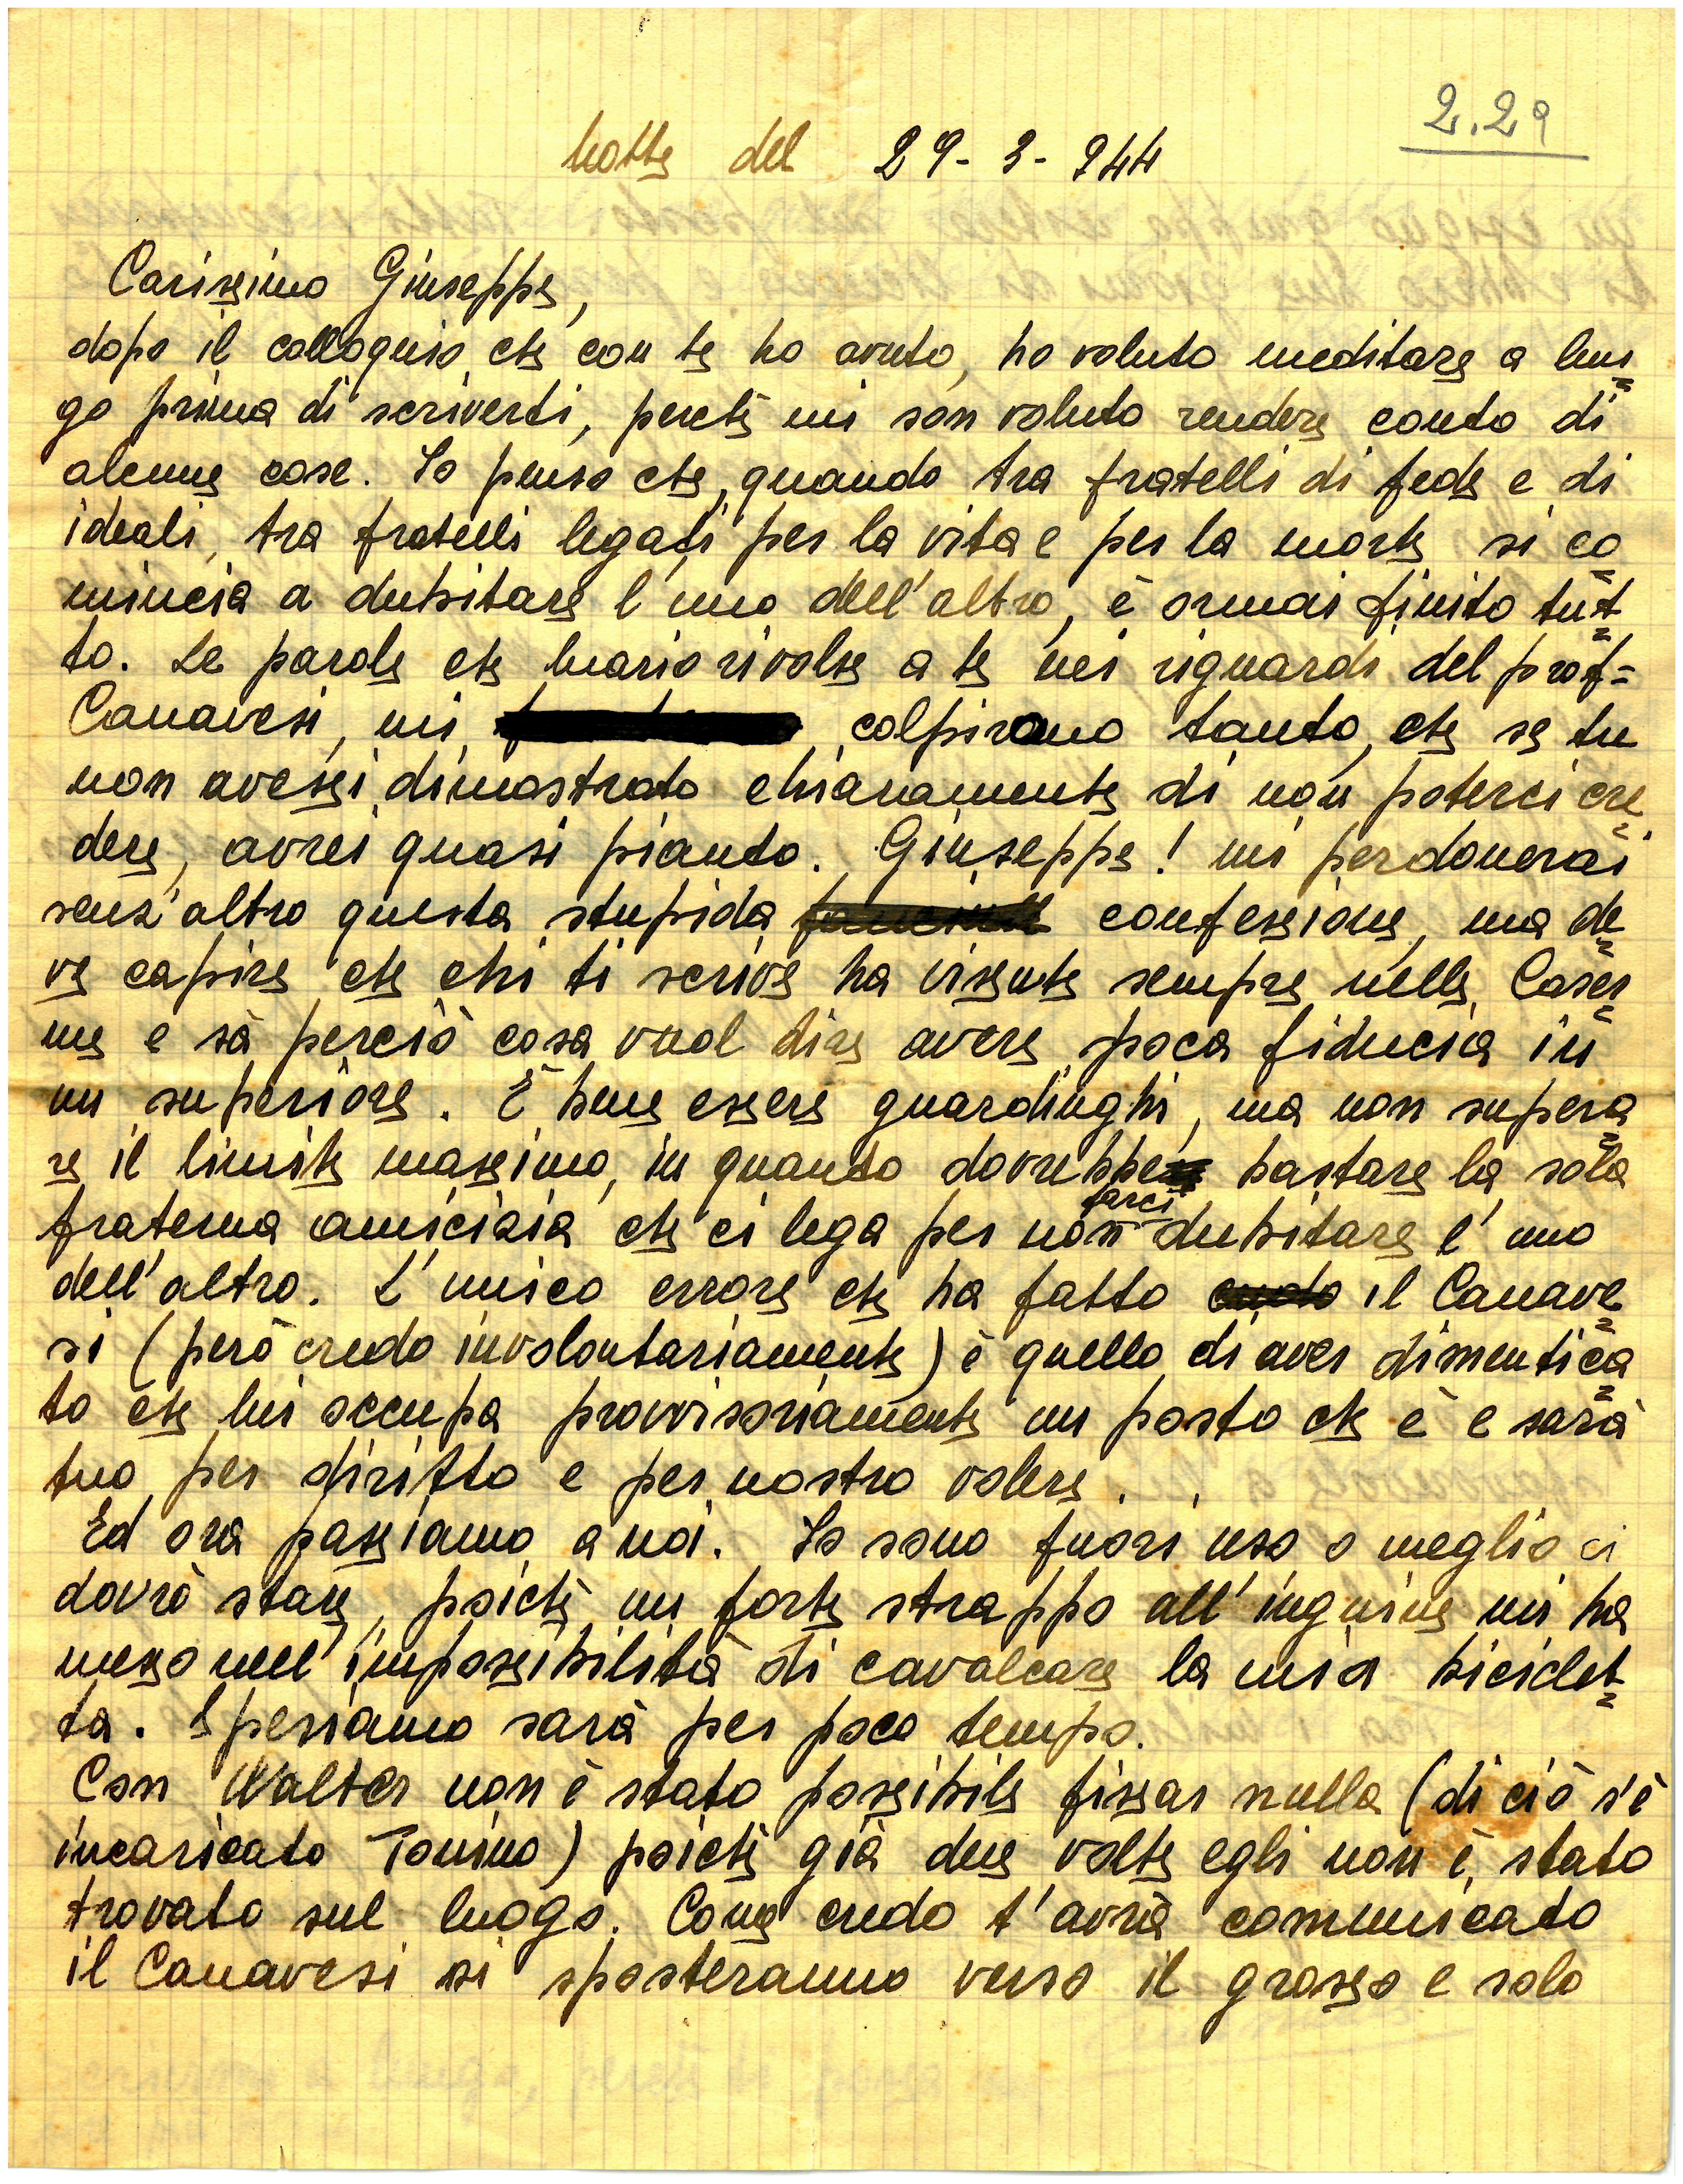 2.29
Notte del 29-3-944
Carissimo Giuseppe,
dopo il colloquio che con te ho avuto, ho voluto meditare a lun
go prima di scriverti, perchè mi son voluto rendere conto di
alcune cose. Io penso che, quando tra fratelli di fede e di
ideali, tra fratelli legati per la vita e per la morte si co
mincia a dubitare l'uno dell'altro, è ormai finito tut
to. Le parole che Mario rivolse a te nei riguardi del prof=
Canavesi, mi colpirono tanto, che se tu
non avessi dimostrato chiaramente di non poterci cre
dere, avrei quasi pianto. Giuseppe! mi perdonerai
senz'altro questa stupida confessione, ma de
ve capire che chi ti scrive ha vissute sempre nelle Caser
me e sà perciò cosa vuol dire avere poca fiducia in
un superiore. È bene essere guardinghi, ma non supera
re il limite massimo, in quanto dovrebbe bastare la sola
fraterna amicizia che ci lega per non farci dubitare l'uno
dell'altro. L'unico errore che ha fatto il Canave
si (però credo involontariamente) è quello di aver dimentica
to che lui occupa provvisoriamente un posto che è e sarà
tuo per diritto e per nostro volere.
Ed ora passiamo a noi. Io sono fuori uso o meglio ci
dovrò stare, poichè un forte strappo all'inguine mi ha
messo nell'impossibilità di cavalcare la mia biciclet
ta. Speriamo sarà per poco tempo.
Con Walter non è stato possibile fissar nulla (di ciò s'è
incaricato Tonino) poichè già due volte egli non è stato
trovato sul luogo. Come credo t'avrà comunicato
il Canavesi si sposteranno verso il grosso e solo